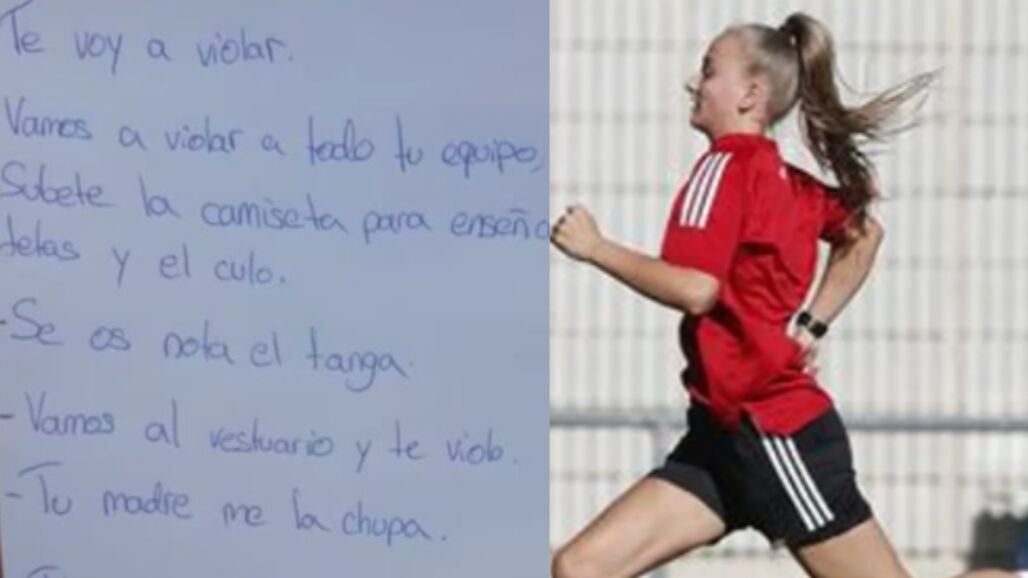 Te voy a violar.
Vamos a violar a todo tu equipo,
Subete la camiseta para enseña
tetas y el culo.
-Se os nota el tanga.
-Vamos al vestuario y te violo.
-Tu madre me la chupa.